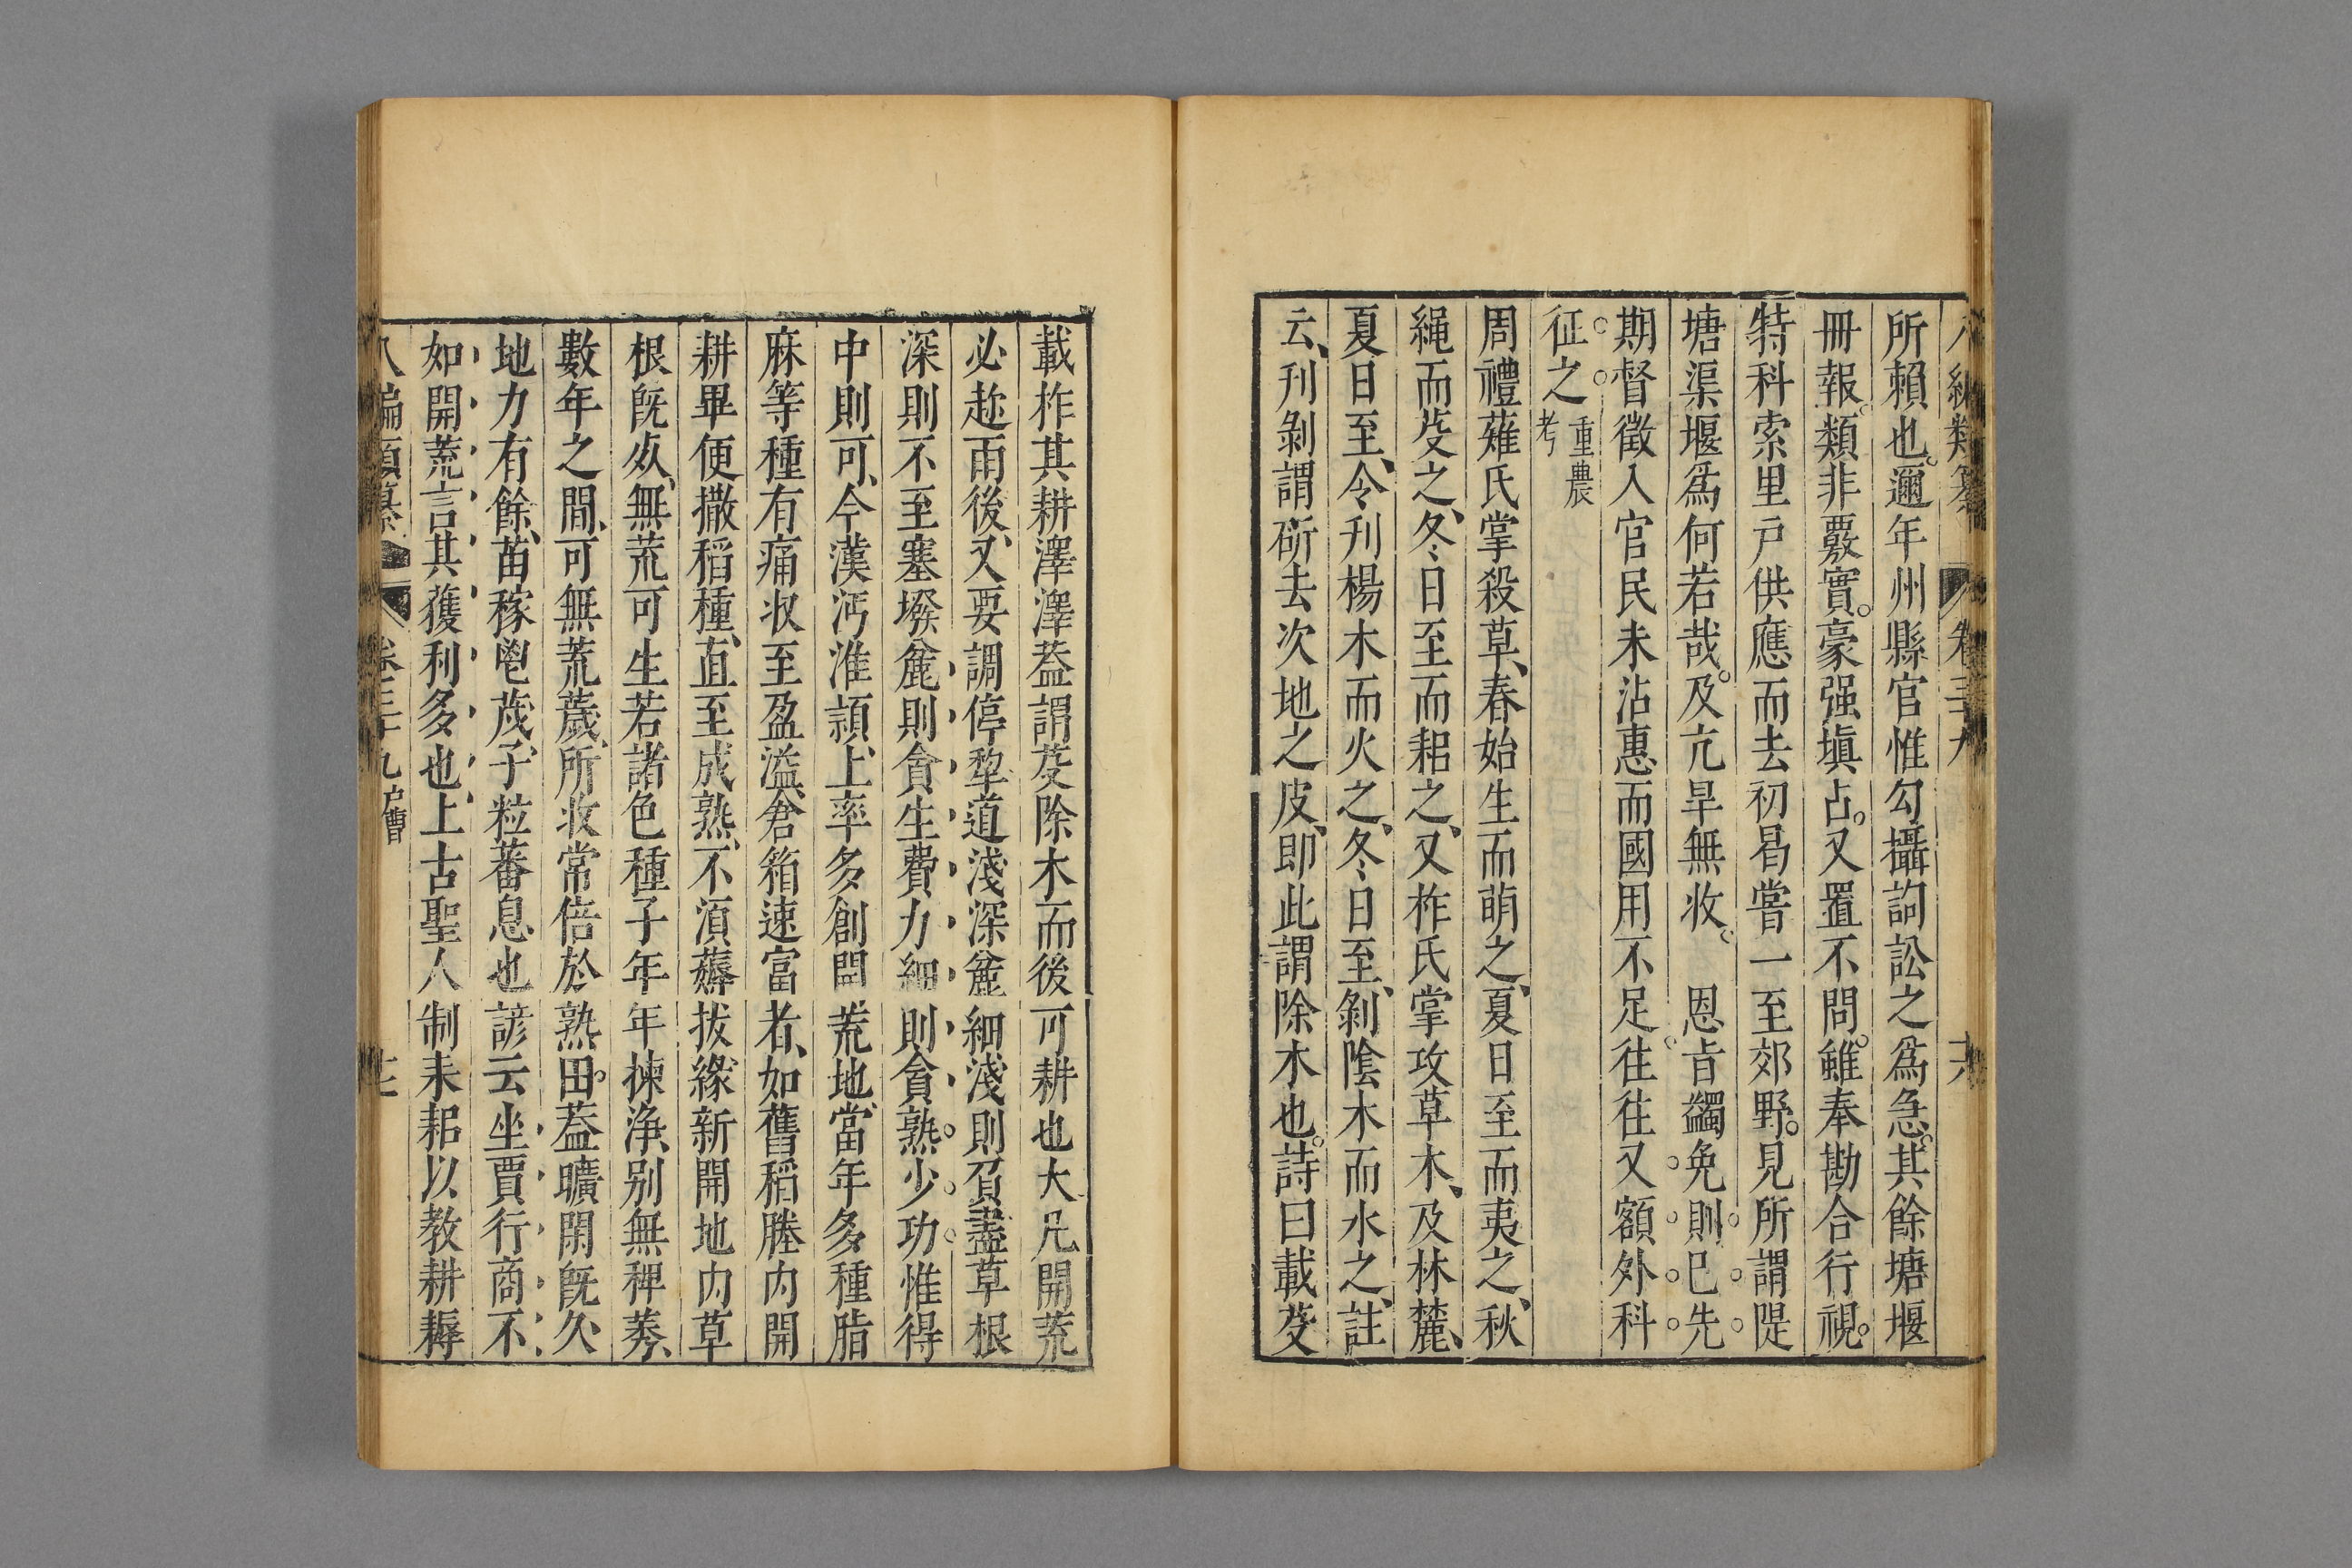 八編類纂 卷三九 十六
所賴也邇年州縣官惟勾攝詞訟之爲急其餘塘堰
冊報類非覈實豪强塡占又置不問雖奉勘合行視
特科索里戶供應而去初曷嘗一至郊野見所謂隄
塘渠堰爲何若哉及亢旱無收 恩旨蠲免則已先
期督徵入官民未沾惠而國用不足徃徃又額外科
征之重農考
周禮薙氏掌殺草春始生而萌之夏日至而夷之秋
繩而芟之冬日至而耜之又柞氏掌攻草木及林麓
夏日至令刋楊木而火之冬日至剝陰木而水之註
云刋剝謂斫去次地之皮卽此謂除木也詩曰載芟
載柞其耕澤澤葢謂芟除木而後可耕也大凡開荒
必趂雨後又要調停犂道淺深麄細淺則㒵盡草根
深則不至塞墢麄則貪生費力細則貪熟少功惟得
中則可今漢沔淮頴上率多創開荒地當年多種脂
麻等種有痛收至盈溢倉箱速富者如舊稻塍內開
耕畢便撒稻種直至成熟不湏薅拔緣新開地內草
根旣㱙無荒可生若諸色種子年年揀淨別無稗莠
數年之間可無荒薉所收常倍於熟田葢曠閑旣久
地力有餘苗稼鬯茂子粒蕃息也諺云坐賈行商不
如開荒言其獲利多也上古聖人制耒耜以教耕耨
八編類纂 卷三十九 戶曹 十七